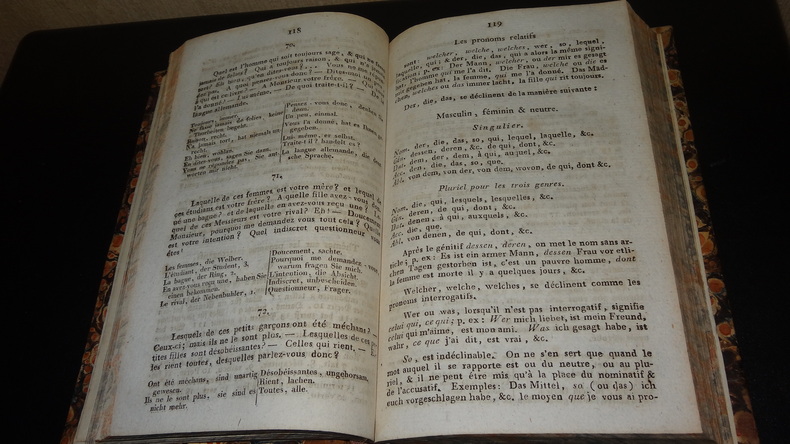 118
70.
Quel est l'homme qui soit toujours sage, & qui ne
langue allemande.
Toujours, immer.
Ne faire jamais de folies, keine
Thorheiten begeln.
Raison, recht.
Eh bien, wohlan.
werten mir nicht.
Pensez-vous donc, denken Sie
denn.
Un peu, einmal.
Vous l'a donné, hat es Ihnen
gegeben.
Lui-même, er selbst.
Traite-t-il? handelt es?
La langue allemande, die deut-
sche Sprache.
71.
Laquelle de ces femmes est votre mère? et lequel de
ces étudians est votre frère? A quelle fille avez-vous don-
né une bague? et de laquelle en avez-vous reçu une? Le-
quel de ces Messieurs est votre rival? Eh! — Doucement
Monsieur, pourquoi me demandez-vous tout cela? Quelle
est votre intention? Quel indiscret questionneur vous
êtes!
Les femmes, die Weiber.
L'étudiant, der Student, 8.
La bague, der Ring, 2.
En avez-vous reçu une, haben Sie
einen bekommen.
Le rival, der Nebenbuhler, 1.
Doucement, sachte.
Pourquoi me demandez-vous,
warum fragen Sie mich.
L'intention, die Absicht.
Indiscret, unbescheiden.
Questionneur, Frager.
72.
Lesquels de ces petits garçons ont été méchans? —
Ceux-ci; mais ils ne le sont plus. — Lesquelles de ces pe-
tites filles sont désobéissantes? — Celles qui rient. — El-
les rient toutes, desquelles parlez-vous donc?
Ont été méchans, sind unartig
gewesen.
Ils ne le sont plus, sie sind es
nicht mehr.
Désobéissantes, ungehorsam.
Rient, lachen.
Toutes, alle.
119
Les pronoms relatifs
sont welcher, welche, welches, wer, so, lequel,
laquelle, qui; & der, die, das, qui a alors la même signi-
fication; p. ex: Der Mann, welcher, ou der mir es gesagt
hat, l'homme qui me l'a dit. Die Frau, welche ou die es
gegeben hat, la femme, qui me l'a donné. Das Mäd-
chen, welches ou das immer lacht, la fille qui rit toujours.
Der, die, das, se déclinent de la manière suivante:
Masculin, féminin & neutre.
Singulier.
Nom. der, die, das, so, qui, lequel, laquelle, &c.
Gén. dessen, deren &c. de qui, dont, &c.
Dat. dem, der, dem, à qui, auquel, &c.
Acc. den, die, das, so, que.
Abl. von dem, von der, von dem, wovon, de qui, dont &c.
Pluriel pour les trois genres.
Nom. die, qui, lesquels, lesquelles, &c.
Gén. deren, de qui, dont, &c.
Dat. denen, à qui, auxquels, &c.
Acc. die, que.
Abl. von denen, de qui, dont, &c.
Après le génitif dessen, deren, on met le nom sans ar-
ticle; p. ex: Es ist ein armer Mann, dessen Frau vor etli-
chen Tagen gestorben ist, c'est un pauvre homme, dont
la femme est morte il y a quelques jours, &c.
Welcher, welche, welches, se déclinent comme les
pronoms interrogatifs.
Wer ou was, lorsqu'il n'est pas interrogatif, signifie
celui qui, ce qui; p. ex: Wer mich liebet, ist mein Freund,
celui qui m'aime, est mon ami. Was ich gesagt habe, ist
wahr, ce que j'ai dit, est vrai, &c.
So, est indéclinable. On ne s'en sert que quand le
mot auquel il se rapporte est ou du neutre, ou au plu-
riel, & il ne peut être mis qu'à la place du nominatif &
de l'accusatif. Exemples: Das Mittel, so (ou das) ich
euch vorgeschlagen habe, &c. le moyen que je vous ai pro-